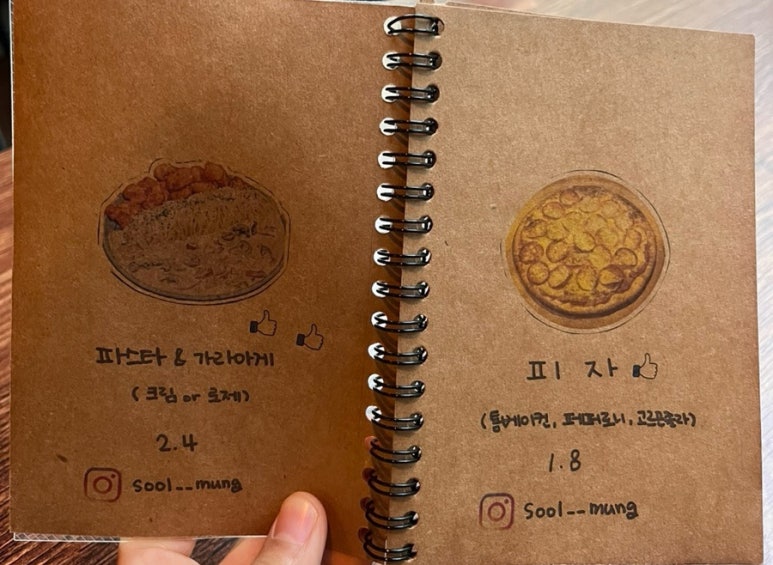 파스타 & 가라아게
(크림 or 로제)
2.4
sool__mung
피 자
(통베이컨, 페퍼로니, 고르곤졸라)
1.8
sool__mung